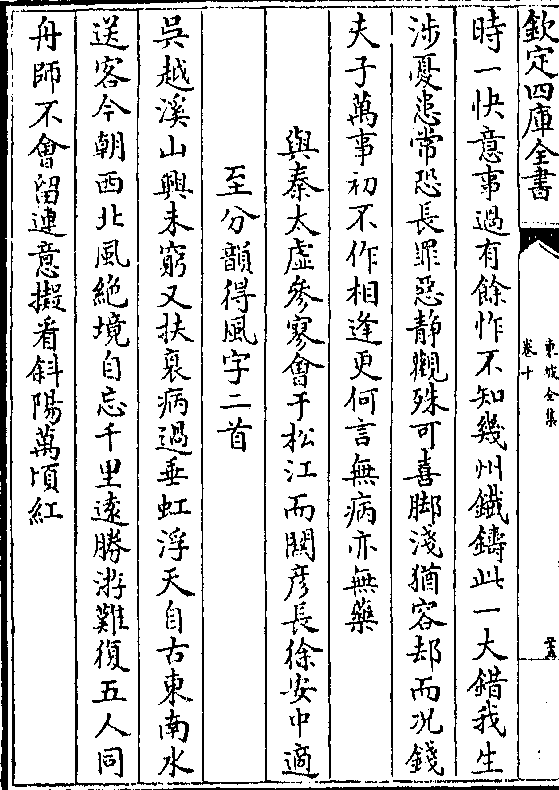 欽定四庫全書
東坡全集
卷十
時一快意事過有餘怍不知幾州鐵鑄此一大錯我生
涉憂患常恐長罪惡靜觀殊可喜脚淺猶容却而况錢
夫子萬事初不作相逢更何言無病亦無藥
與秦太虛參寥會于松江而關彦長徐安中適
至分韻得風字二首
吳越溪山興未窮又扶衰病過垂虹浮天自古東南水
送客今朝西北風絶境自忘千里遠勝游難復五人同
舟師不會留連意擬看斜陽萬頃紅